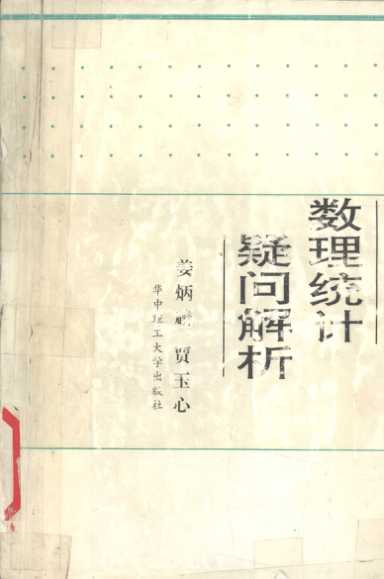 数理统计
疑问解析
姜炳麟 贾玉心
华中理工大学出版社